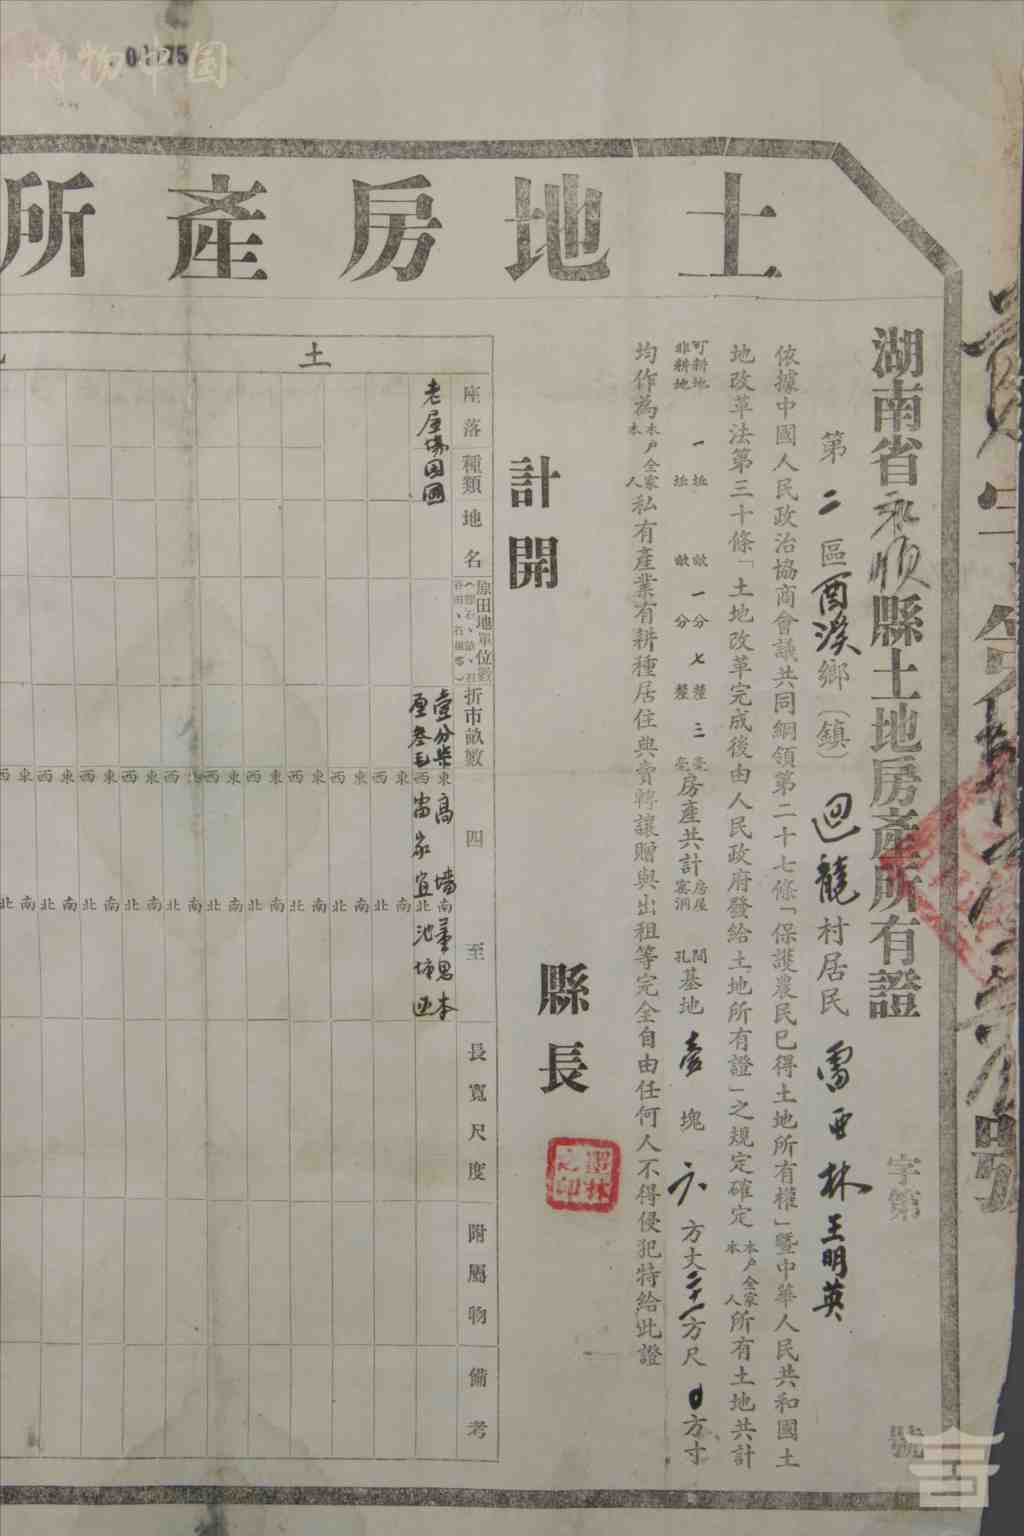 博物中国
土地房產所
湖南省永順縣土地房產所有證 字第 號
第二區酉溪鄉（鎮）迴龍村居民 雷西林 王明英
依據中國人民政治協商會議共同綱領第二十七條「保護農民已得土地所有權」暨中華人民共和國土
地改革法第三十條「土地改革完成後由人民政府發給土地所有證」之規定確定本戶全家本人所有土地共計
可耕地 一坵 畝 一分 七釐 三毫
非耕地 坵 畝 分 釐 毫
房產共計房屋 間窰洞 孔基地壹塊六方丈二十一方尺0方寸
均作為本戶全家本人私有產業有耕種居住典賣轉讓贈與出租等完全自由任何人不得侵犯特給此證
計開
縣長
墨林之印
土
座落
種類
地名
原田地單位數
折市畝數
四至
長寬尺度
附屬物
備考
老屋場
壹分柒厘叁毛
東 高墻
西
南
北
東西南北
東西南北
東西南北
東西南北
東西南北